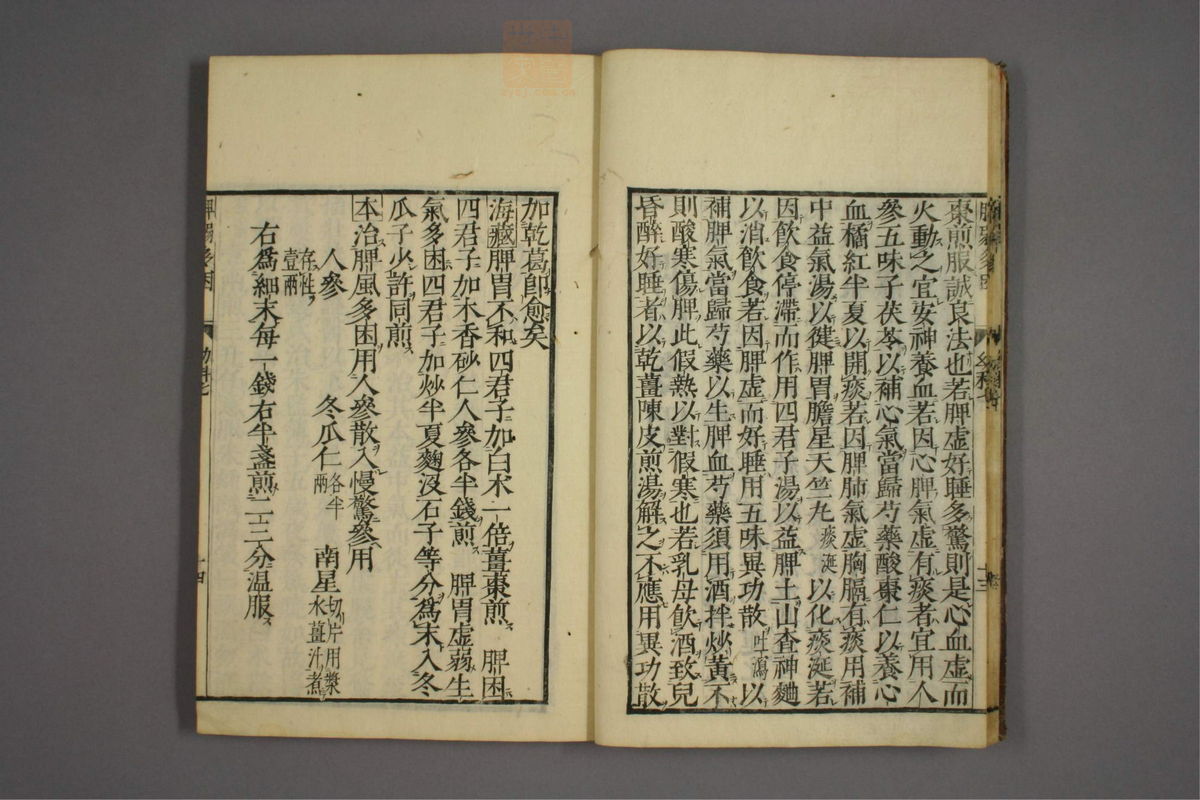 棗煎服誠良法也若脾虛好睡多驚則是心血虛而
火動之宜安神養血若因心脾氣虛有痰者宜用人
參五味子茯苓以補心氣當歸芍藥酸棗仁以養心
血橘紅半夏以開痰若因脾肺氣虛胸膈有痰用補
中益氣湯以健脾胃膽星天竺丸痰涎以化痰涎若
因飲食停滯而作用四君子湯以益脾土山查神麯
以消飲食若因脾虛而好睡用五味異功散吐瀉以
補脾氣當歸芍藥以生脾血芍藥須用酒拌炒黃不
則酸寒傷脾此假熱以對假寒也若乳母飲酒致兒
昏醉好睡者以乾薑陳皮煎湯解之不應用異功散
加乾葛卽愈矣
海藏脾胃不和四君子加白朮一倍薑棗煎 脾困
四君子加木香砂仁人參各半錢煎 脾胃虛弱生
氣多困四君子加炒半夏麴沒石子等分爲末入冬
瓜子少許同煎
本治脾風多困用人參散入慢驚參用
人參 冬瓜仁各半兩 南星切片用漿水薑汁煮
存性壹兩
右爲細末每一錢右半盞煎二三分温服
十四